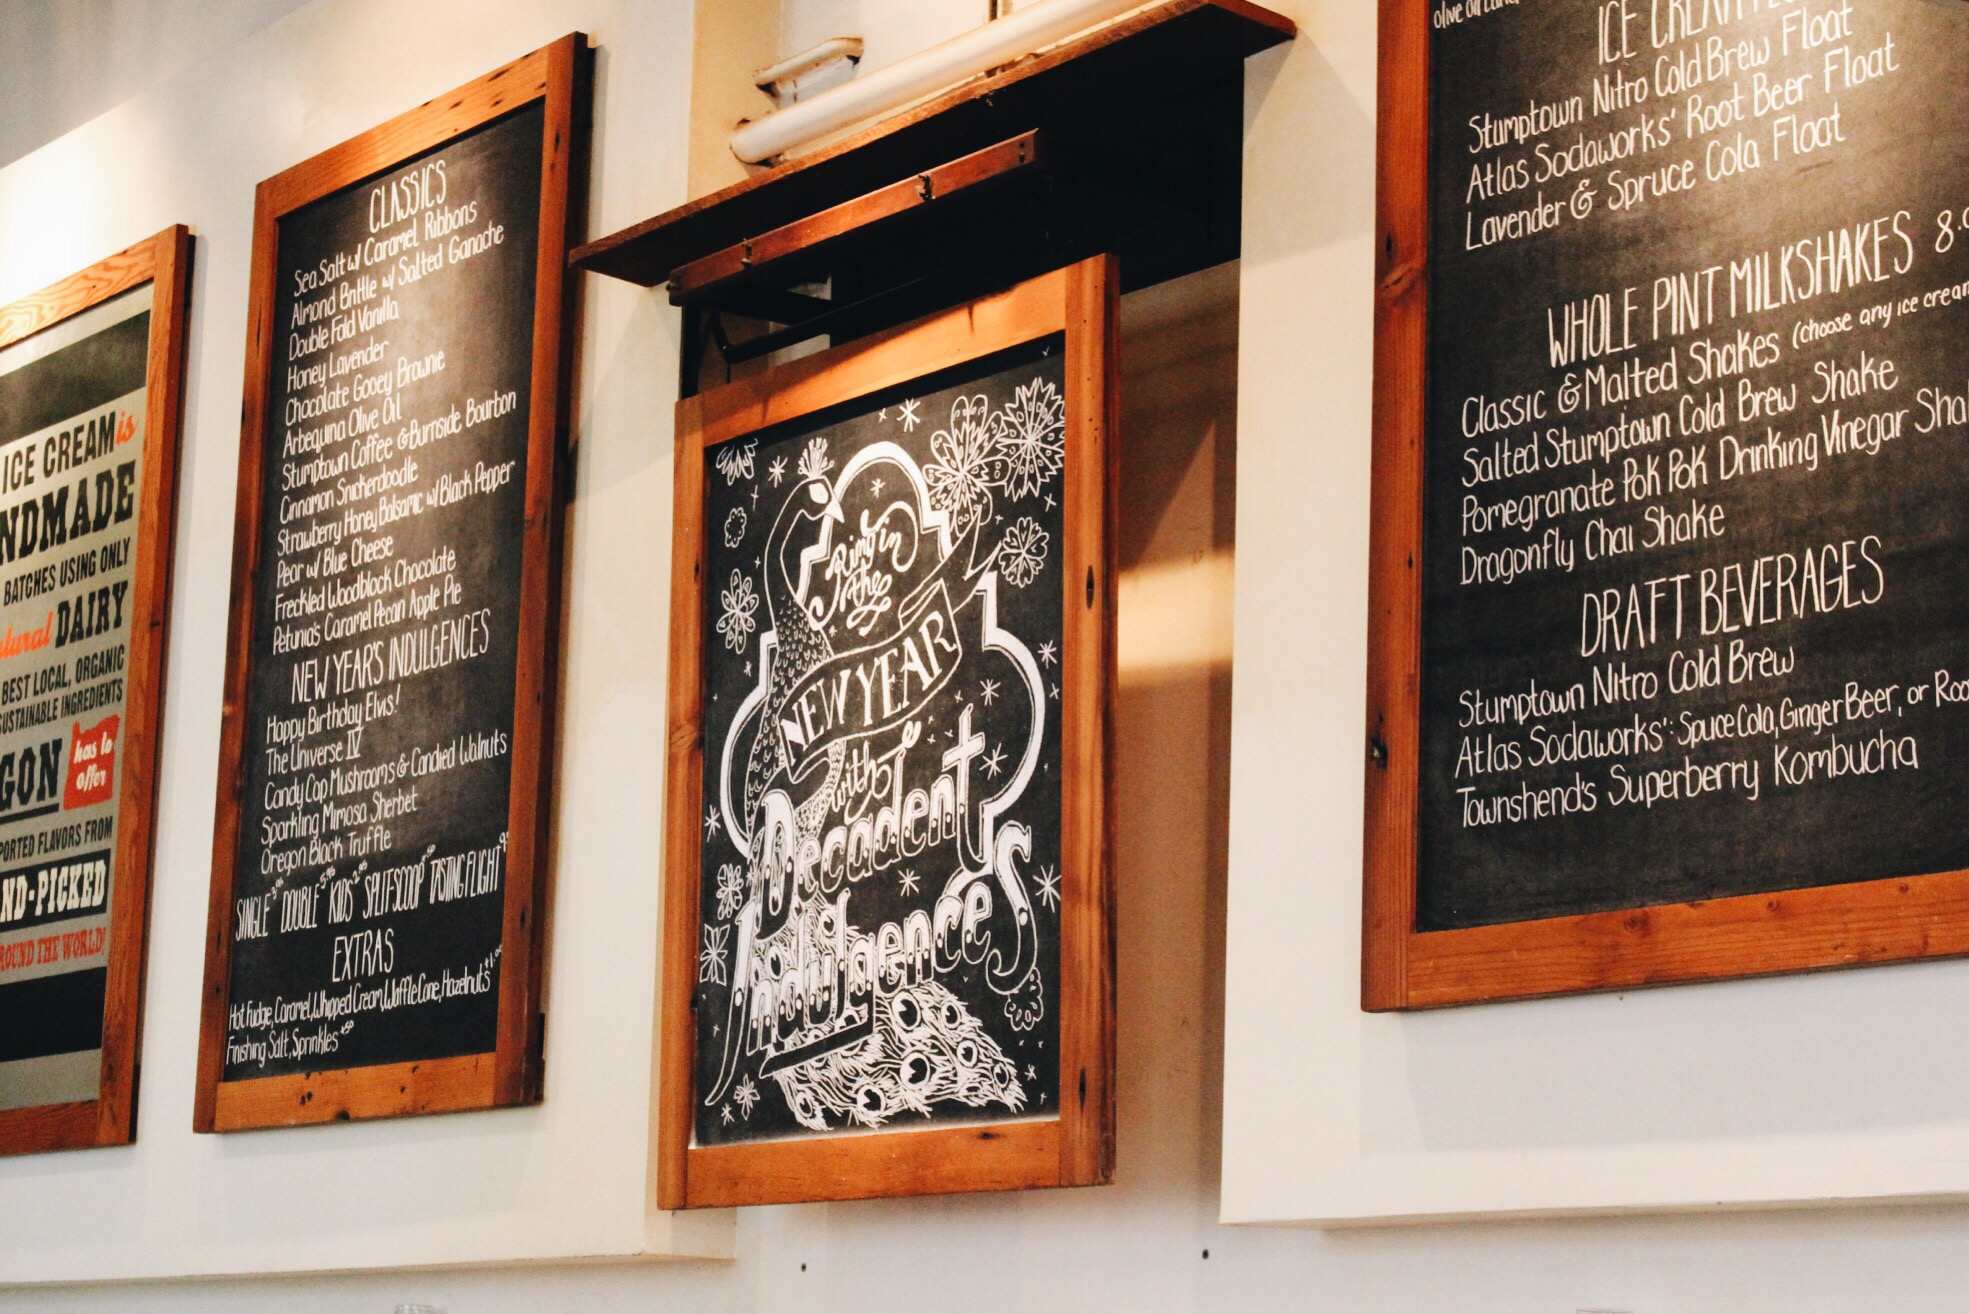 ICE CREAM is
NDMADE
BATCHES USING ONLY
DAIRY
BEST LOCAL, ORGANIC
INGREDIENTS
has to
offer
FLAVORS FROM
ROUND THE WORLD!
CLASSICS
Sea Salt w/ Caramel Ribbons
Almond Brittle w/ Salted Ganache
Double Fold Vanilla
Honey Lavender
Chocolate Gooey Brownie
Arbequina Olive Oil
Stumptown Coffee & Burnside Bourbon
Cinnamon Snickerdoodle
Strawberry Honey Balsamic w/ Black Pepper
Pear w/ Blue Cheese
Freckled Woodblock Chocolate
Petunia's Caramel Pecan Apple Pie
NEW YEAR'S INDULGENCES
Happy Birthday Elvis!
The Universe IV
Candy Cap Mushrooms & Candied Walnuts
Sparkling Mimosa Sherbet
Oregon Black Truffle
SINGLE DOUBLE KIDS SPLIT SCOOP TASTING FLIGHT
EXTRAS
Hot Fudge, Caramel, Whipped Cream, Waffle Cone, Hazelnuts
Finishing Salt, Sprinkles
Ring in
the
NEW YEAR
with
Decadent
Indulgences
ICE CREAM
Stumptown Nitro Cold Brew Float
Atlas Sodaworks' Root Beer Float
Lavender & Spruce Cola Float
WHOLE PINT MILKSHAKES
Classic & Malted Shakes (choose any ice cream
Salted Stumptown Cold Brew Shake
Pomegranate Pok Pok Drinking Vinegar Sha
Dragonfly Chai Shake
DRAFT BEVERAGES
Stumptown Nitro Cold Brew
Atlas Sodaworks': Spuce Cola, Ginger Beer, or Roo
Townshend's Superberry Kombucha